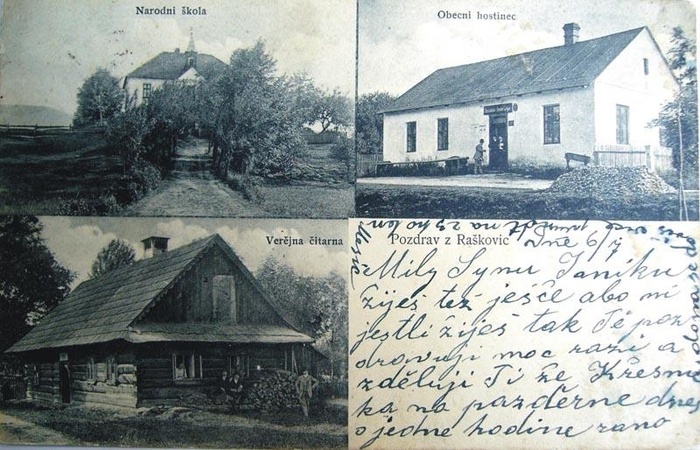 Narodni škola
Obecni hostinec
Verějna čitarna
Pozdrav z Raškovic
Dne 6/7
Mily Synu Janíku
žiješ též ješče abo ni
jestli žiješ tak Tě poz
drovuji moc razi a
zděluji Ti že Křesni
ka na pazděrne dnes
o jedne hodine rano